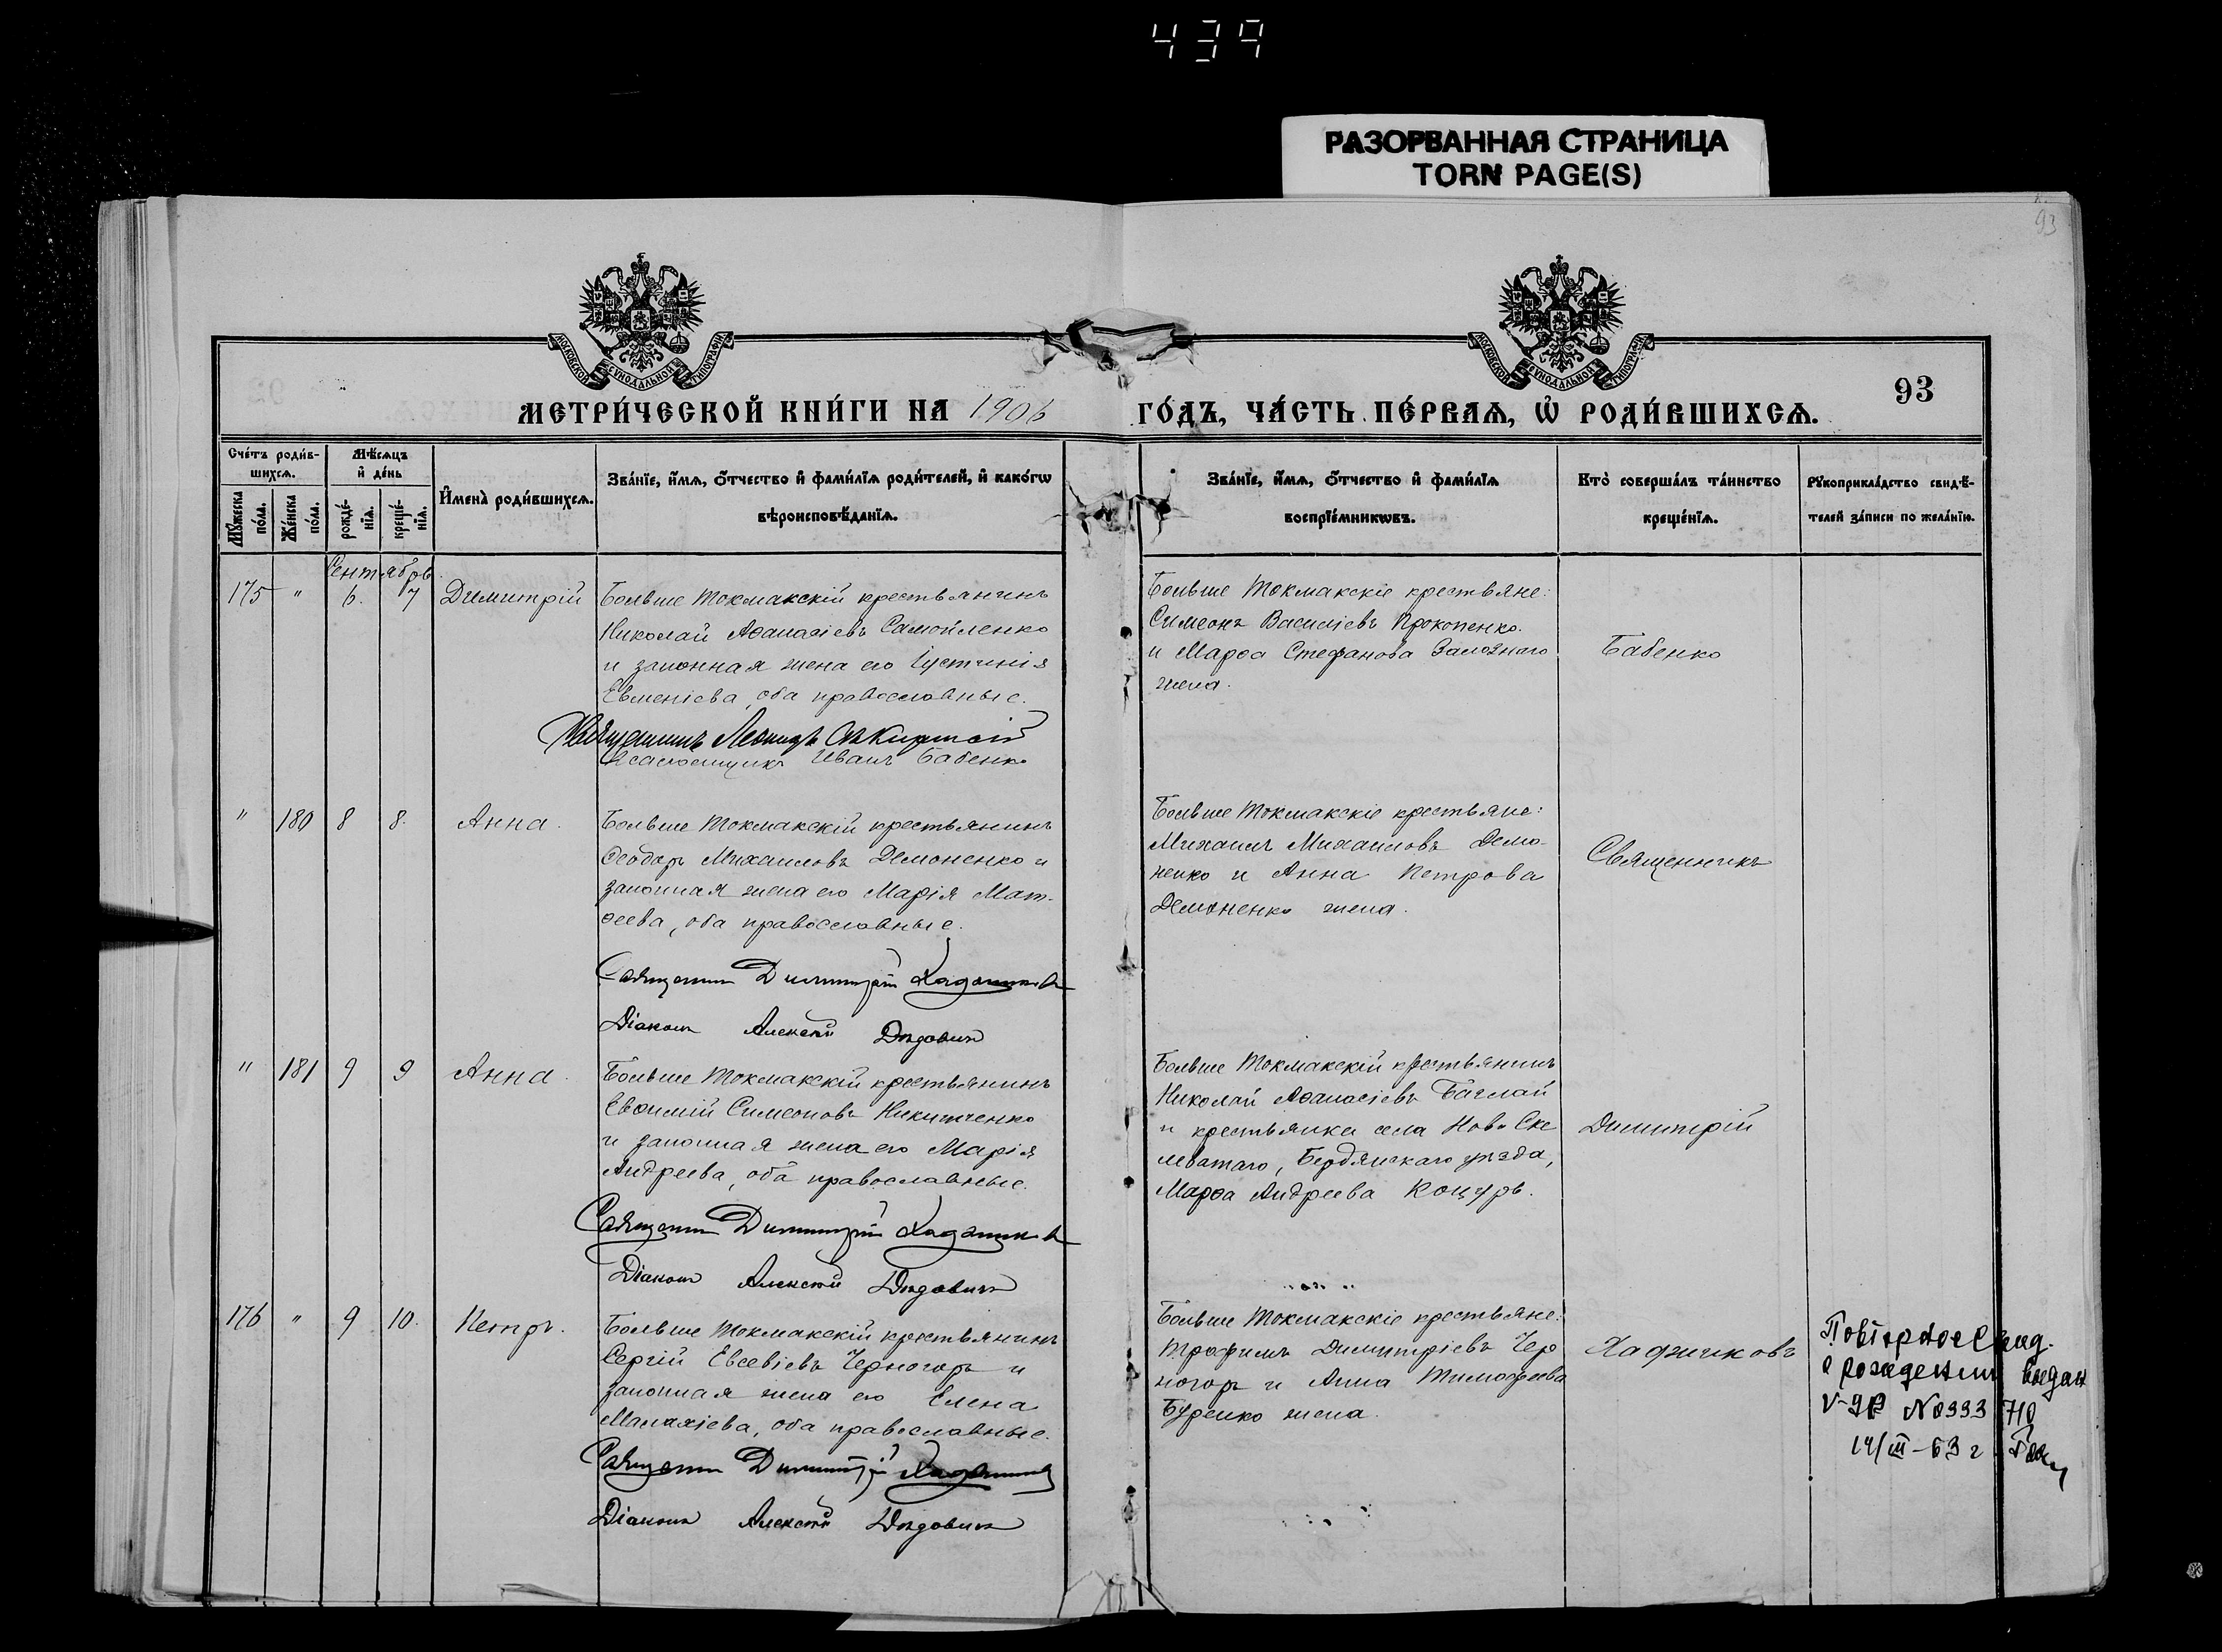 439
РАЗОРВАННАЯ СТРАНИЦА
TORN PAGE(S)
93
МОСКОВСКОЙ СѴНОДАЛЬНОЙ ТИПОГРАФІИ
МОСКОВСКОЙ СѴНОДАЛЬНОЙ ТИПОГРАФІИ
93
МЕТРИ́ЧЕСКОЙ КНИ́ГИ НА 1906 ГО́ДЪ, ЧА́СТЬ ПЕ́РВАѦ, Ѡ҆ РОДИ́ВШИХСѦ.
Сче́тъ роди́в-
шихсѧ.
Мꙋ́жеска по́ла.
Же́нска по́ла.
Мѣ́сѧцъ
и҆ де́нь
рожде́-
нїѧ.
креще́-
нїѧ.
И҆мена̀ роди́вшихсѧ.
Зва́нїе, и҆́мѧ, ѻ҆́тчество и҆ фами́лїѧ роди́телей, и҆ како́гѡ
вѣроисповѣ́данїѧ.
Зва́нїе, и҆́мѧ, ѻ҆́тчество и҆ фами́лїѧ
воспрїе́мникѡвъ.
Кто̀ соверша́лъ та́инство
креще́нїѧ.
Рꙋкоприкла́дство свидѣ́-
телей за́писи по жела́нїю.
Сентябрь.
175 " 6. 7 Димитрій
Больше Токмакскій крестьянинъ
Николай Аѳанасіевъ Самойленко
и законная жена его Іустинія
Евменіева, оба православные.
Священникъ Леонидъ
Псаломщикъ Иванъ Бабенко
Больше Токмакскіе крестьяне:
Симеонъ Василіевъ Прокопенко
и Марѳа Стефанова Залознаго
жена.
Бабенко
" 180 8 8. Анна.
Больше Токмакскій крестьянинъ
Ѳеодоръ Михаиловъ Демоненко и
законная жена его Марія Мат-
ѳеева, оба православные.
Священникъ Димитрій Хаджиновъ
Діаконъ Алексѣй Дѣдовичъ
Больше Токмакскіе крестьяне:
Михаилъ Михаиловъ Демо-
ненко и Анна Петрова
Демоненко жена.
Священникъ
" 181 9 9 Анна.
Больше Токмакскій крестьянинъ
Евѳимій Симеоновъ Никитченко
и законная жена его Марія
Андреева, оба православные.
Священникъ Димитрій Хаджиновъ
Діаконъ Алексѣй Дѣдовичъ
Больше Токмакскій крестьянинъ
Николай Аѳанасіевъ Баглай
и крестьянка села Ново Ске
леватаго, Бердянскаго уѣзда,
Марѳа Андреева Коцурь.
Димитрій
176 " 9 10. Петръ.
Больше Токмакскій крестьянинъ
Сергій Евсевіевъ Черногоръ и
законная жена его Елена
Малахіева, оба православные.
Священникъ Димитрій Хаджиновъ
Діаконъ Алексѣй Дѣдовичъ
Больше Токмакскіе крестьяне:
Трофимъ Димитріевъ Чер
ногоръ и Анна Тимофеева
Буренко жена.
Хаджиновъ
Повторное свид.
о рождении выдан
V-ЯР № 0333710
14/III-63 г.